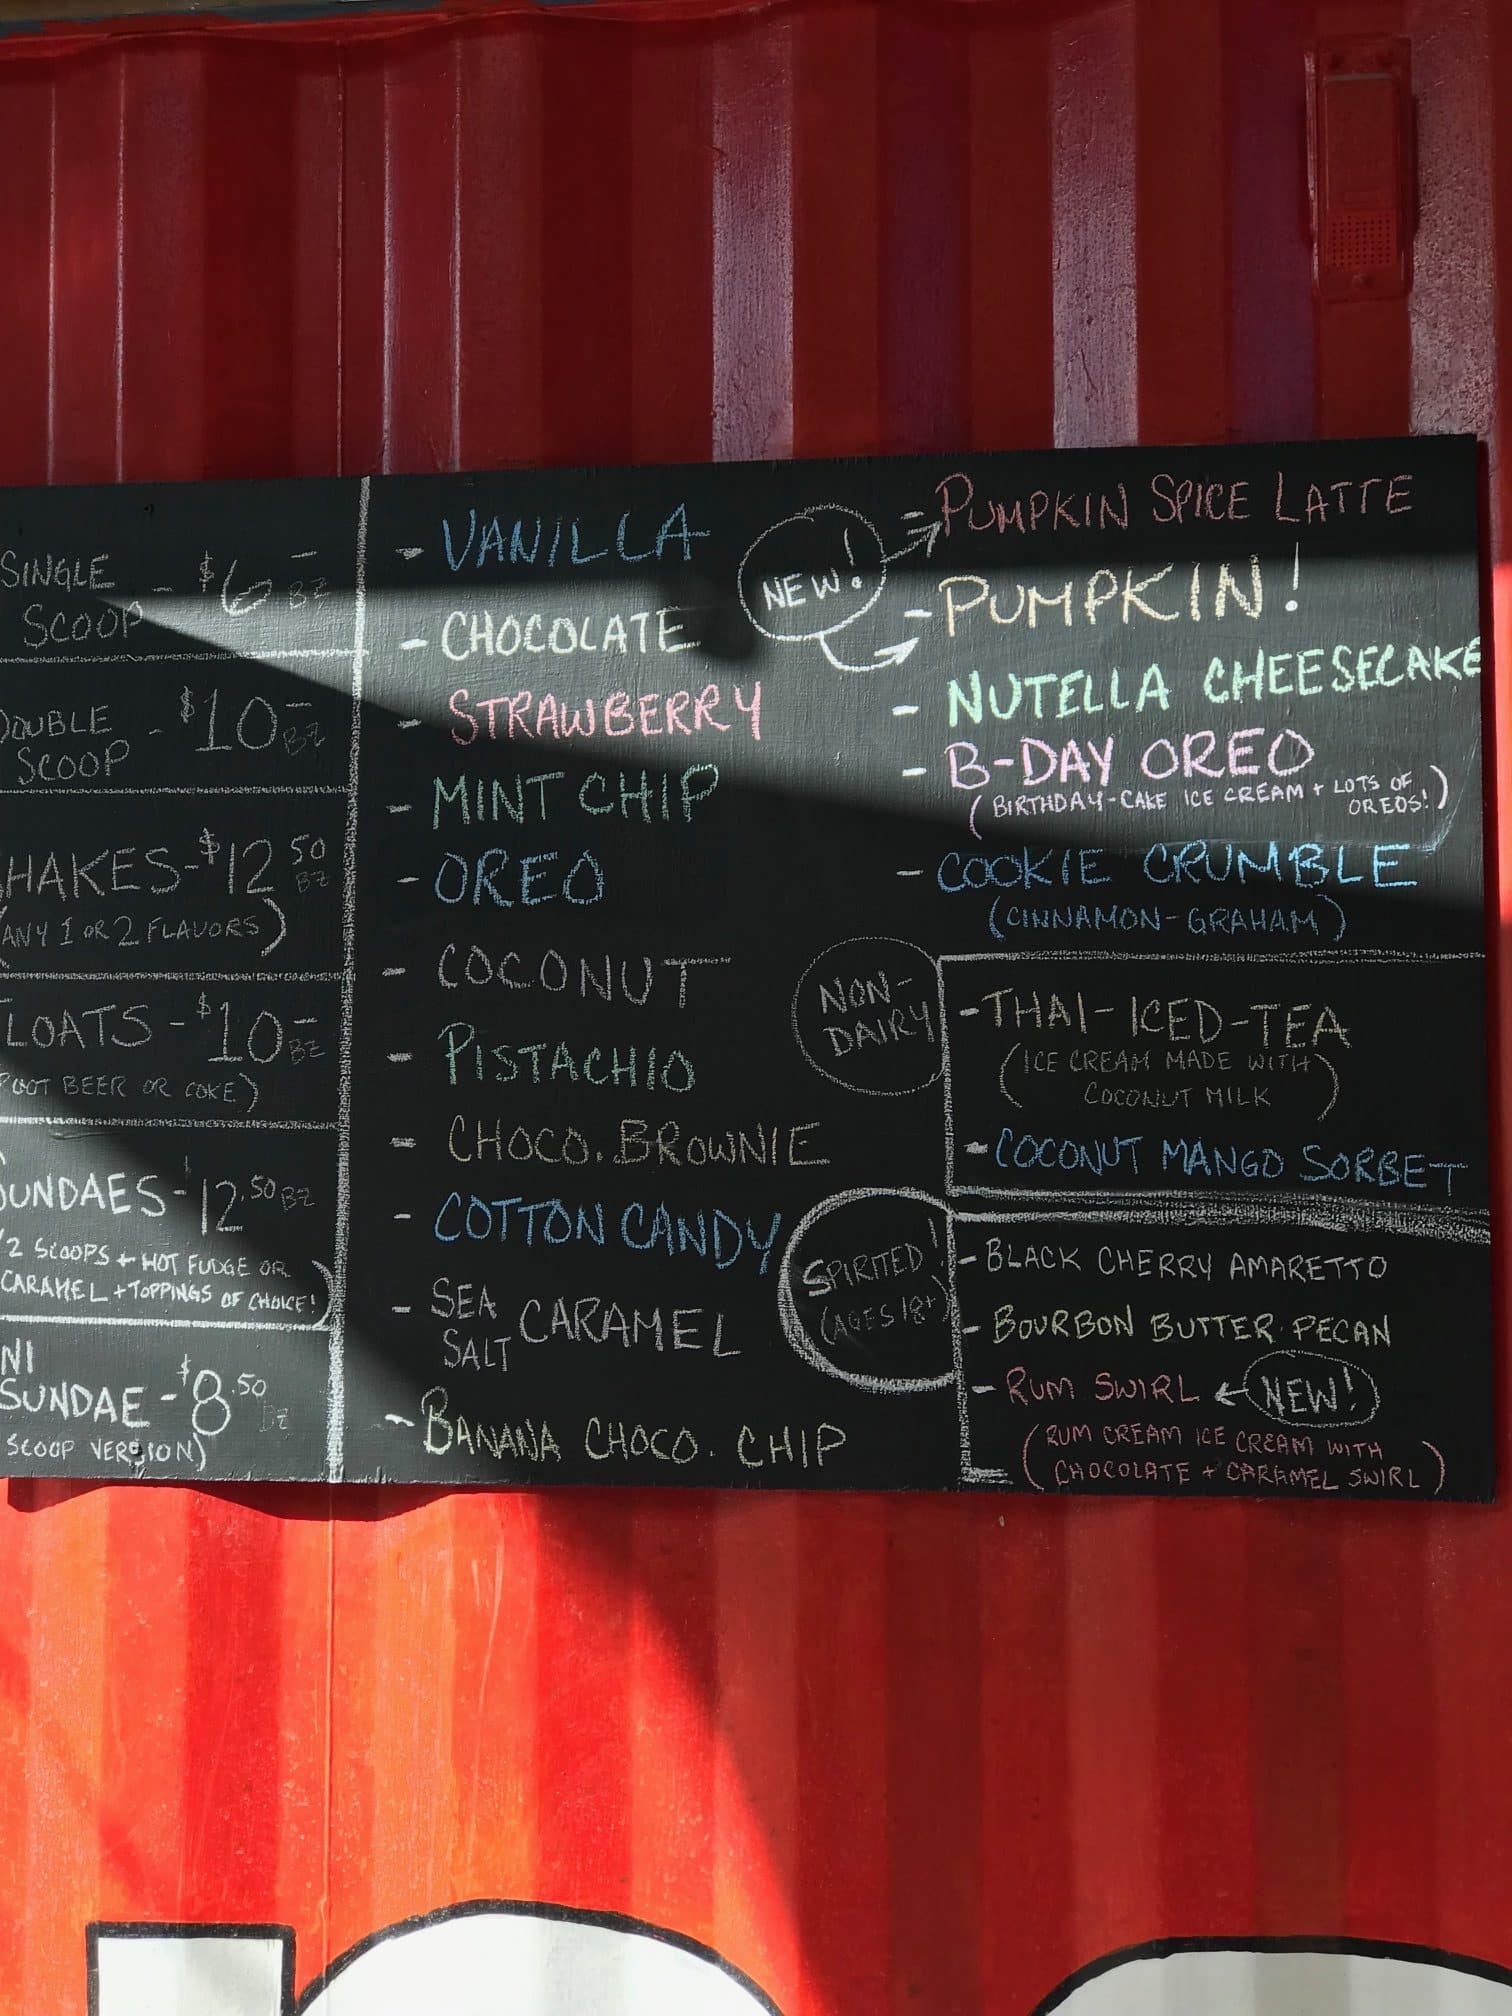 SINGLE
SCOOP - $6 - BZ
DOUBLE
SCOOP - $10 - BZ
HAKES - $12 50 BZ
(ANY 1 OR 2 FLAVORS)
LOATS - $10 - BZ
ROOT BEER OR COKE)
SUNDAES - 12.50 BZ
2 SCOOPS + HOT FUDGE OR
CARAMEL + TOPPINGS OF CHOICE!)
NI
SUNDAE - $8.50 BZ
SCOOP VERSION)
- VANILLA
- CHOCOLATE
- STRAWBERRY
- MINT CHIP
- OREO
- COCONUT
- PISTACHIO
- CHOCO. BROWNIE
- COTTON CANDY
- SEA
SALT CARAMEL
- BANANA CHOCO. CHIP
NEW!
- PUMPKIN SPICE LATTE
- PUMPKIN!
- NUTELLA CHEESECAKE
- B-DAY OREO
(BIRTHDAY-CAKE ICE CREAM + LOTS OF
OREOS!)
- COOKIE CRUMBLE
(CINNAMON-GRAHAM)
NON-
DAIRY
- THAI-ICED-TEA
(ICE CREAM MADE WITH
COCONUT MILK)
- COCONUT MANGO SORBET
SPIRITED!
(AGES 18+)
- BLACK CHERRY AMARETTO
- BOURBON BUTTER PECAN
- RUM SWIRL ← NEW!
(RUM CREAM ICE CREAM WITH
CHOCOLATE + CARAMEL SWIRL)